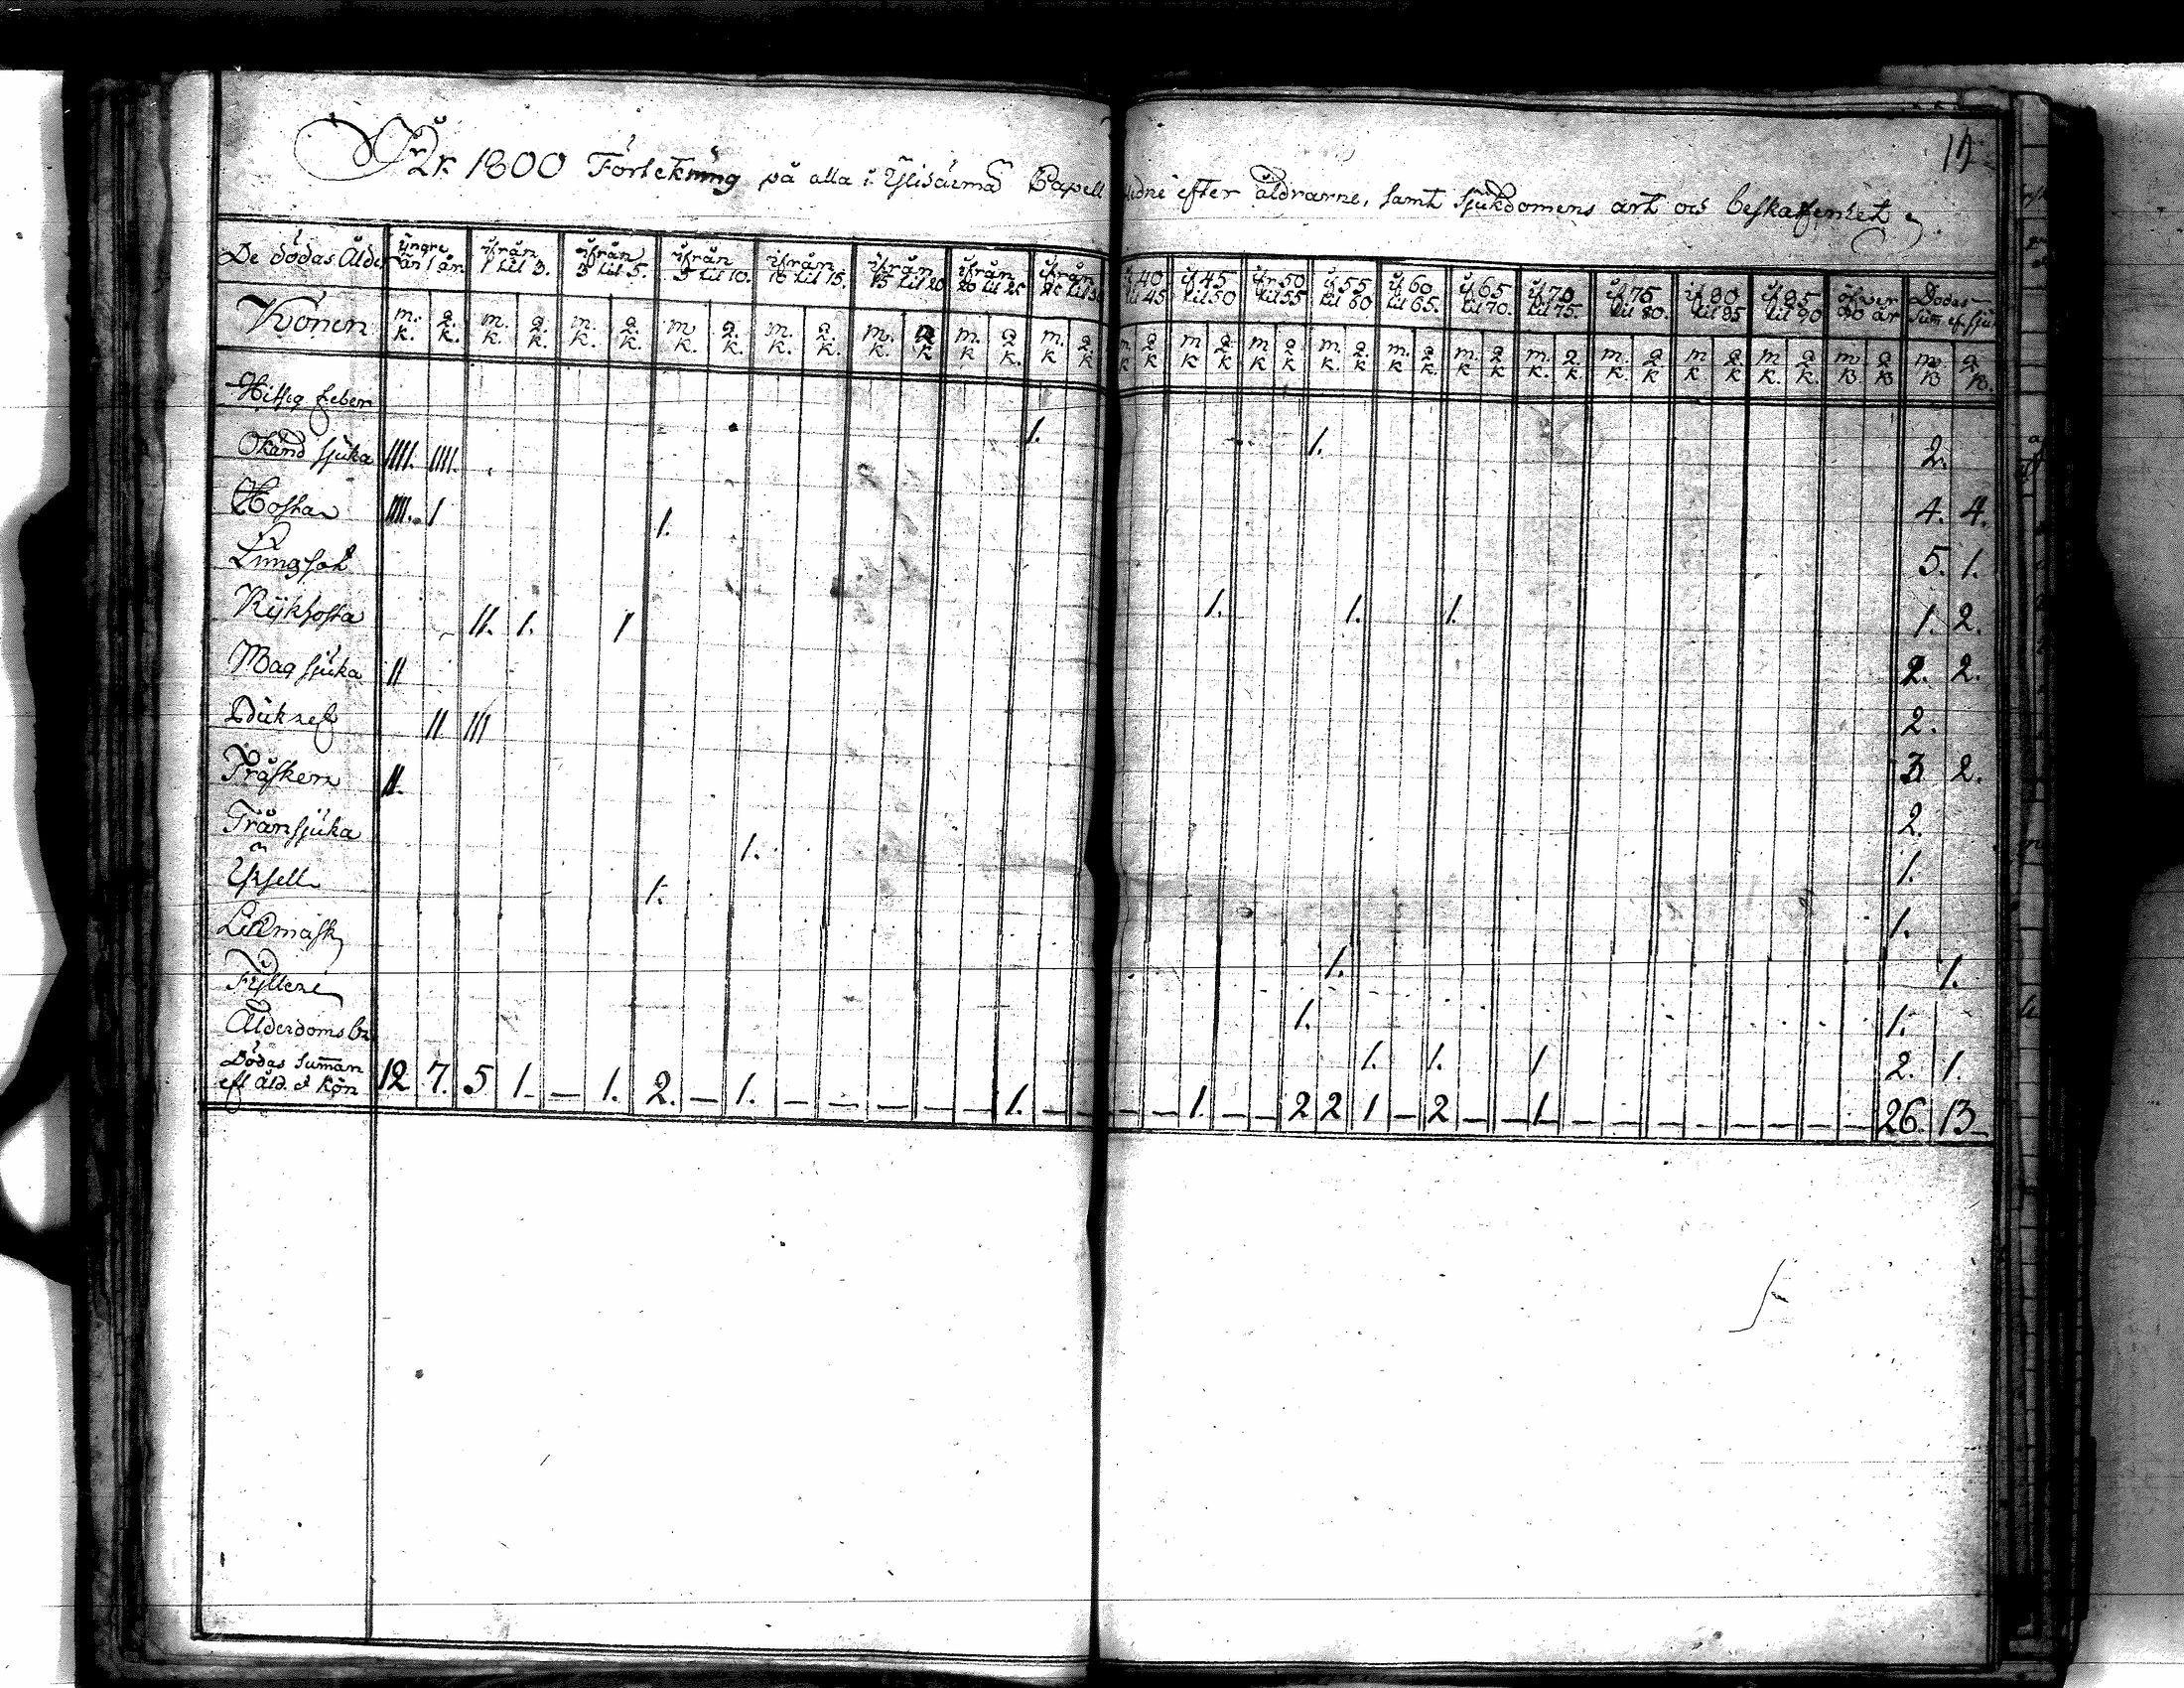 År 1800 Förtekning på alla i Ylisärmä Capell efter åldrarne, samt sjukdomens art och beskaffenhet
De dödas Ålder yngre än 1 år ifrån 1 til 3. ifrån 3 til 5. ifrån 5 til 10. ifrån 10 til 15. ifrån 15 til 20 ifrån 20 til 25 ifrån if 40 til 45 if 45 til 50 ifr 50 til 55 if 55 til 60 if 60 til 65. if 65 til 70. if 70 til 75. if 75 til 80. if 80 til 85 if 85 til 90 öfver 90 år Dödas Sum ef. sju
Könen m. k. q. k. m. k. q. k. m. k. q. k. m. k. q. k. m. k. q. k. m. k. q. k m. k q. k. m. k q. k m k q. k m k q. k m k q. k m. k. q. k. m. k q. k m. k q. k m. k. q. k. m. k q. k m k q. k m k. q. k. m k q. k m k q. k.
Hittig feber 1. 1. 2.
Okänd sjuka IIII. IIII. 4. 4.
Hosta IIII. 1 1. 5. 1.
Lungsot 1. 1. 1. 1. 2.
Kykhosta II. 1. 1 2. 2.
Mag sjuka II 2.
II III 3 2.
Tråsken II. 2.
Trånsjuka 1. 1.
1. 1.
1. 1.
Fylleri 1. 1.
Ålderdoms br 1. 1. 1 2. 1.
Dödas Summan eft åld. o kön 12 7. 5 1. – 1. 2. – 1. – – – – – 1. – – – – 1. – – 2 2 1 – 2 – – 1 – – – – – – – – – 26. 13